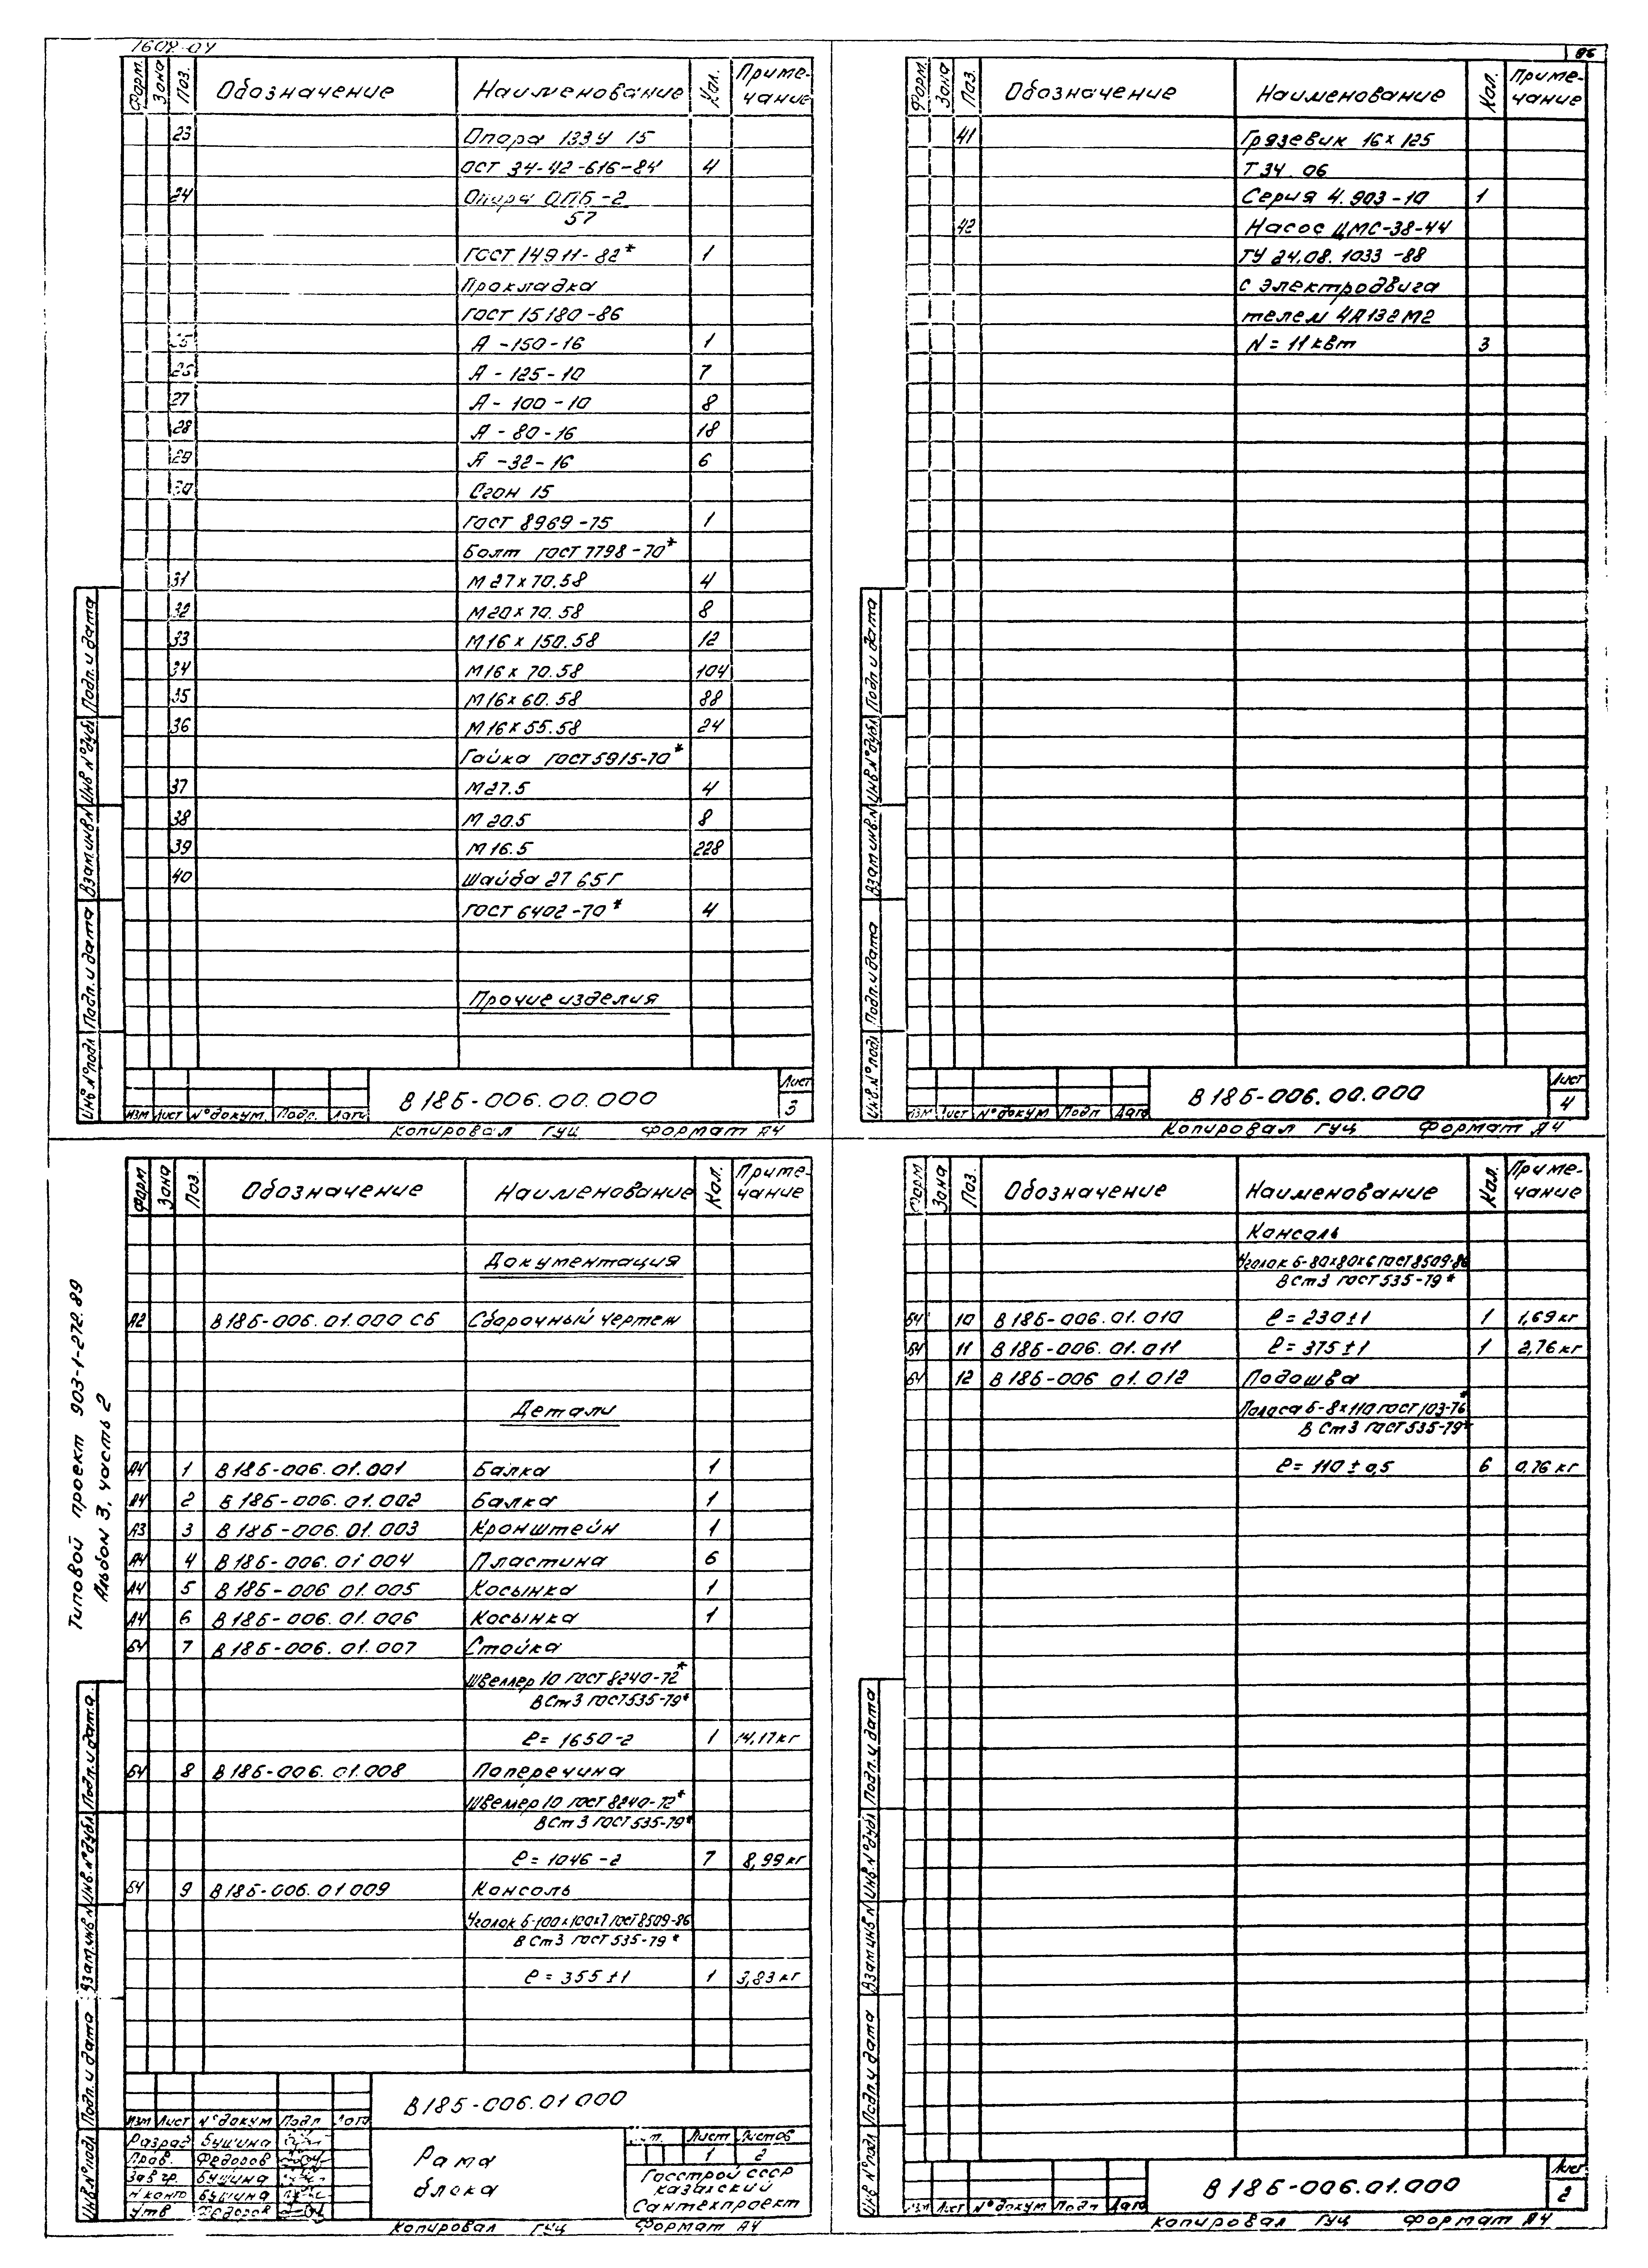 1608-04
86
Форм. Зона Поз. Обозначение Наименование Кол. Приме-
чание
23 Опора 133У 15
ОСТ 34-42-616-84 4
24 Опора ОПБ-2
57
ГОСТ 14911-82* 1
Прокладка
ГОСТ 15180-86
А-150-16 1
А-125-10 7
27 А-100-10 8
28 А-80-16 18
29 А-32-16 6
30 Сгон 15
ГОСТ 8969-75 1
Болт ГОСТ 7798-70*
31 М27х70.58 4
32 М20х70.58 8
33 М16х150.58 12
34 М16х70.58 104
35 М16х60.58 88
36 М16х55.58 24
Гайка ГОСТ 5915-70*
37 М27.5 4
38 М20.5 8
39 М16.5 228
40 Шайба 27 65Г
ГОСТ 6402-70* 4
Прочие изделия
Инв.№подл Подп.и дата Взам инв.№ Инв №дубл Подп.и дата
В 18Б-006.00.000
Лист
3
Изм Лист №докум. Подп. Дата
Копировал ГУЦ Формат А4
Форм. Зона Поз. Обозначение Наименование Кол. Приме-
чание
41 Грязевик 16х125
Т34.06
Серия 4.903-10 1
42 Насос ЦМС-38-44
ТУ 24.08.1033-88
с электродвига
телем 4А132М2
N=11кВт 3
Инв.№подл Подп.и дата Взам инв.№ Инв.№дубл Подп и дата
В 18Б-006.00.000
Лист
4
Изм Лист №докум Подп Дата
Копировал ГУЦ Формат А4
Типовой проект 903-1-272.89
Альбом 3, часть 2
Форм Зона Поз. Обозначение Наименование Кол. Приме-
чание
Документация
А2 В 18Б-006.01.000 СБ Сборочный чертеж
Детали
А4 1 В 18Б-006.01.001 Балка 1
А4 2 В 18Б-006.01.002 Балка 1
А3 3 В 18Б-006.01.003 Кронштейн 1
А4 4 В 18Б-006.01 004 Пластина 6
А4 5 В 18Б-006 01.005 Косынка 1
А4 6 В 18Б-006.01.006 Косынка 1
БЧ 7 В 18Б-006.01.007 Стойка
Швеллер 10 ГОСТ 8240-72*
ВСт3 ГОСТ535-79*
ℓ=1650-2 1 14,17кг
БЧ 8 В 18Б-006.01.008 Поперечина
Швеллер 10 ГОСТ 8240-72*
ВСт3 ГОСТ535-79*
ℓ=1046-2 7 8,99кг
БЧ 9 В 18Б-006.01 009 Консоль
Уголок Б-100х100х7 ГОСТ8509-86
ВСт3 ГОСТ535-79*
ℓ=355±1 1 3,83кг
Инв.№подл Подп.и дата Взам.инв № Инв.№дубл Подп.и дата
В 18Б-006.01 000
Изм Лист №докум Подп Дата
Разраб Бушина
Пров. Федоров
Зав гр. Бушина
Н контр Бушина
Утв Федоров
Рама
блока
Лит. Лист Листов
1 2
Госстрой СССР
Казахский
Сантехпроект
Копировал ГУЦ Формат А4
Форм Зона Поз. Обозначение Наименование Кол. Приме-
чание
Консоль
Уголок Б-80х80х6 ГОСТ8509-86
ВСт3 ГОСТ535-79*
БЧ 10 В 18Б-006.01.010 ℓ=230±1 1 1,69кг
БЧ 11 В 18Б-006.01.011 ℓ=375±1 1 2,76кг
БЧ 12 В 18Б-006 01.012 Подошва
Полоса Б-8х110 ГОСТ103-76*
ВСт3 ГОСТ535-79*
ℓ=110±0,5 6 0,76кг
Инв №подл Подп.и дата Взам инв № Инв.№дубл Подп.и дата
В 18Б-006.01.000
Лист
2
Изм Лист №докум Подп Дата
Копировал ГУЦ Формат А4